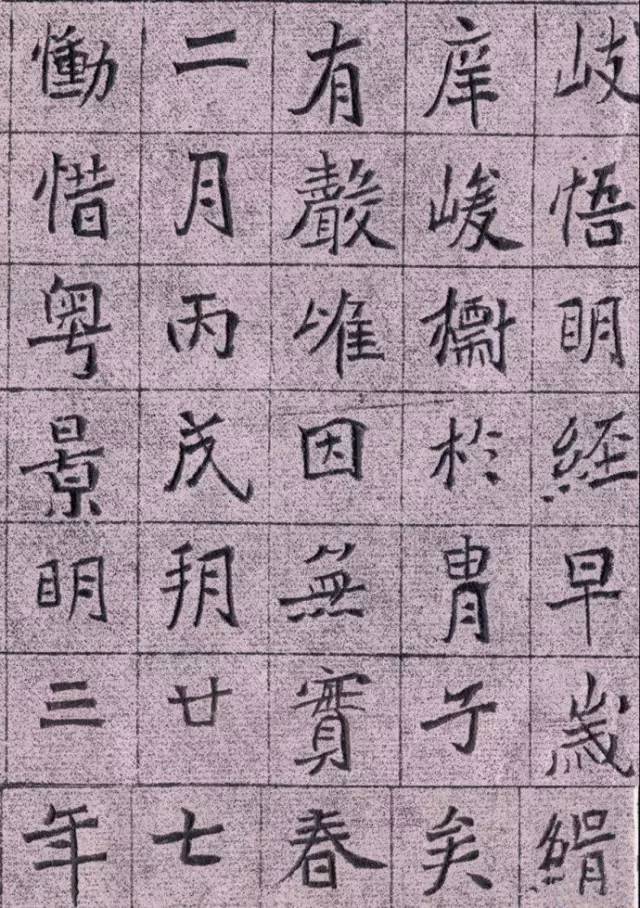 岐悟明經早歲
庠峻於胄子矣
有聲因無實春
二月丙戌朔廿七
慟惜粤景明三年